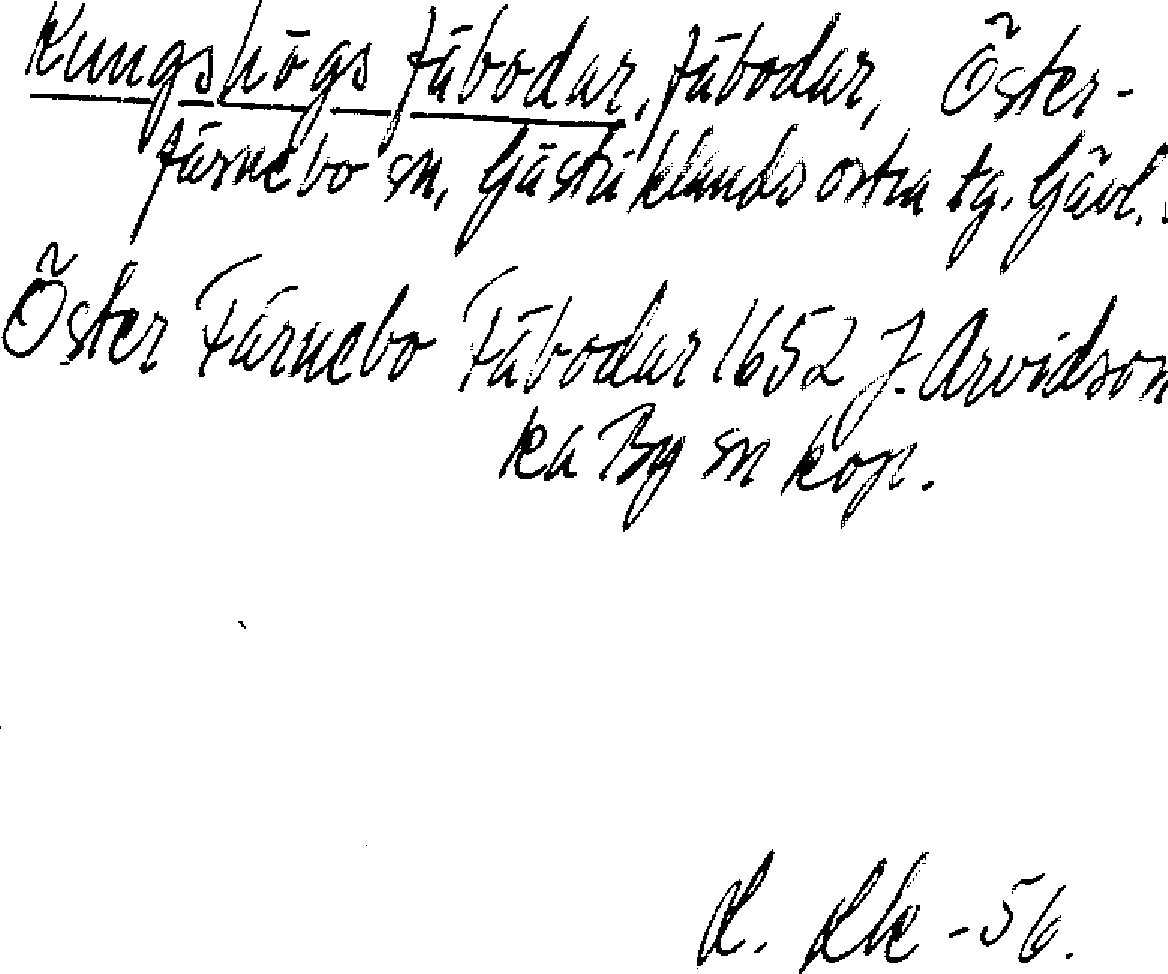 Kungshögs fäbodar, fäbodar, Öster-
färnebo sn, Gästriklands östra tg. Gävl.
Öster Färnebo Fäbodar 1652 J. Arvidson
ka By sn kop.
R. Rk -56.